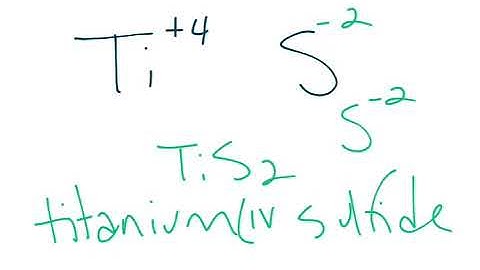 Ti+4 S-2
S-2
TiS2
titanium(IV sulfide